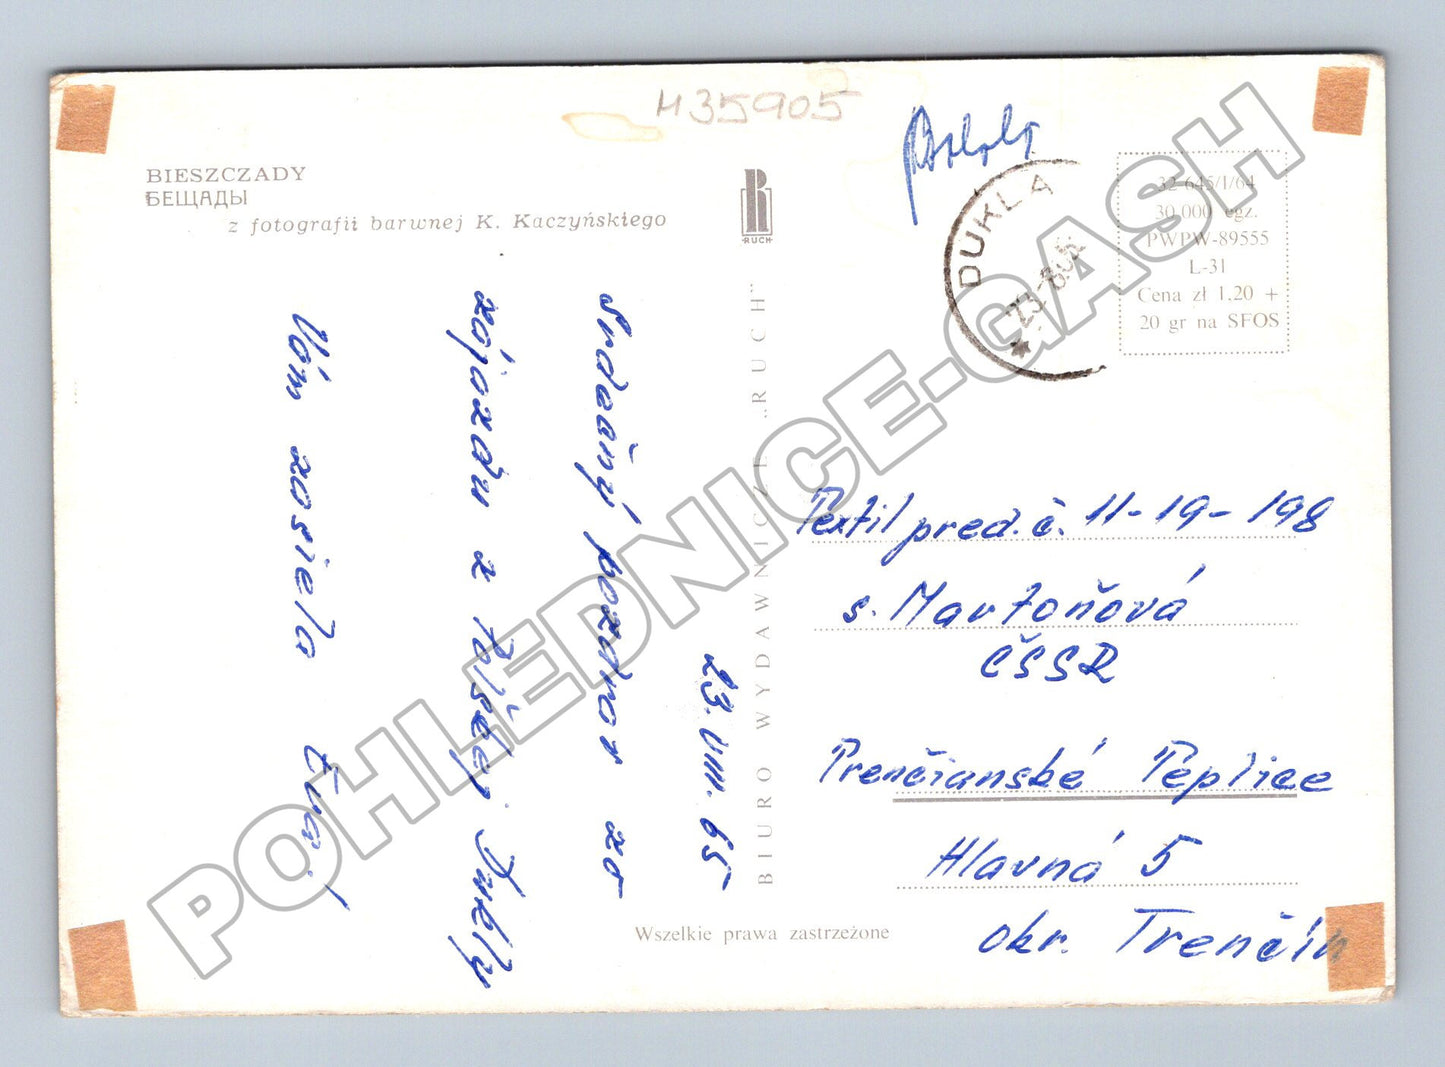 H35905
BIESZCZADY
БЕЩАДЫ
z fotografii barwnej K. Kaczyńskiego
R
RUCH
DUKLA
23-8.65
32 645/I/64
30.000 egz.
PWPW-89555
L-31
Cena zł 1.20 +
20 gr na SFOS
23. VIII. 65
Srdečný pozdrav zo
zájazdu z Poľskej Dukly
Vám zasiela Eva!
BIURO WYDAWNICZE „RUCH"
Textil pred. č. 11-19-198
s. Martoňová
ČSSR
Trenčianské Teplice
Hlavná 5
okr. Trenčín
Wszelkie prawa zastrzeżone
POHLEDNICE-GASH